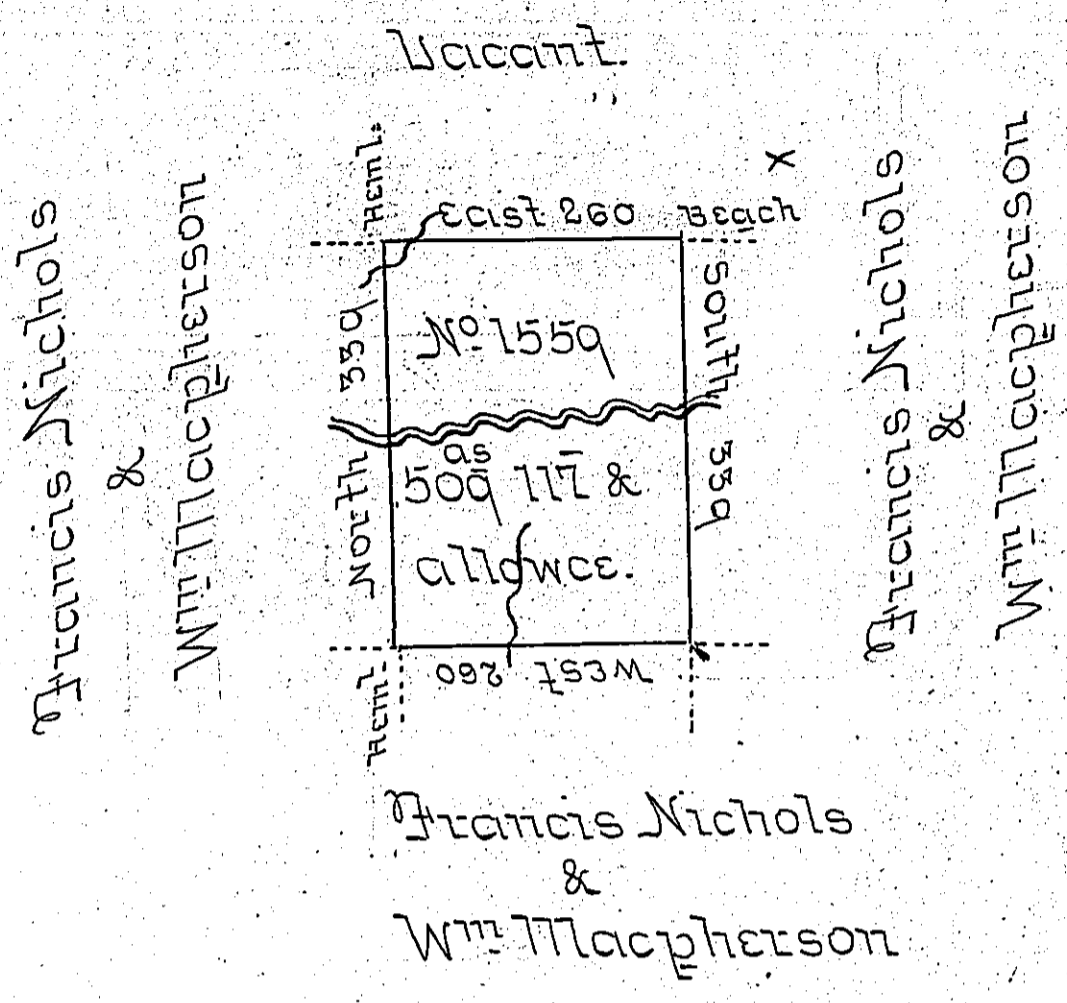 Vacant.
Francis Nichols
&
Wm Macpherson
Heml.
East 260
Beach
X
339
North
No 1559
as
509 117 &
allowce.
South
339
Francis Nichols
&
Wm Macpherson
West 260
Heml
Francis Nichols
&
Wm Macpherson